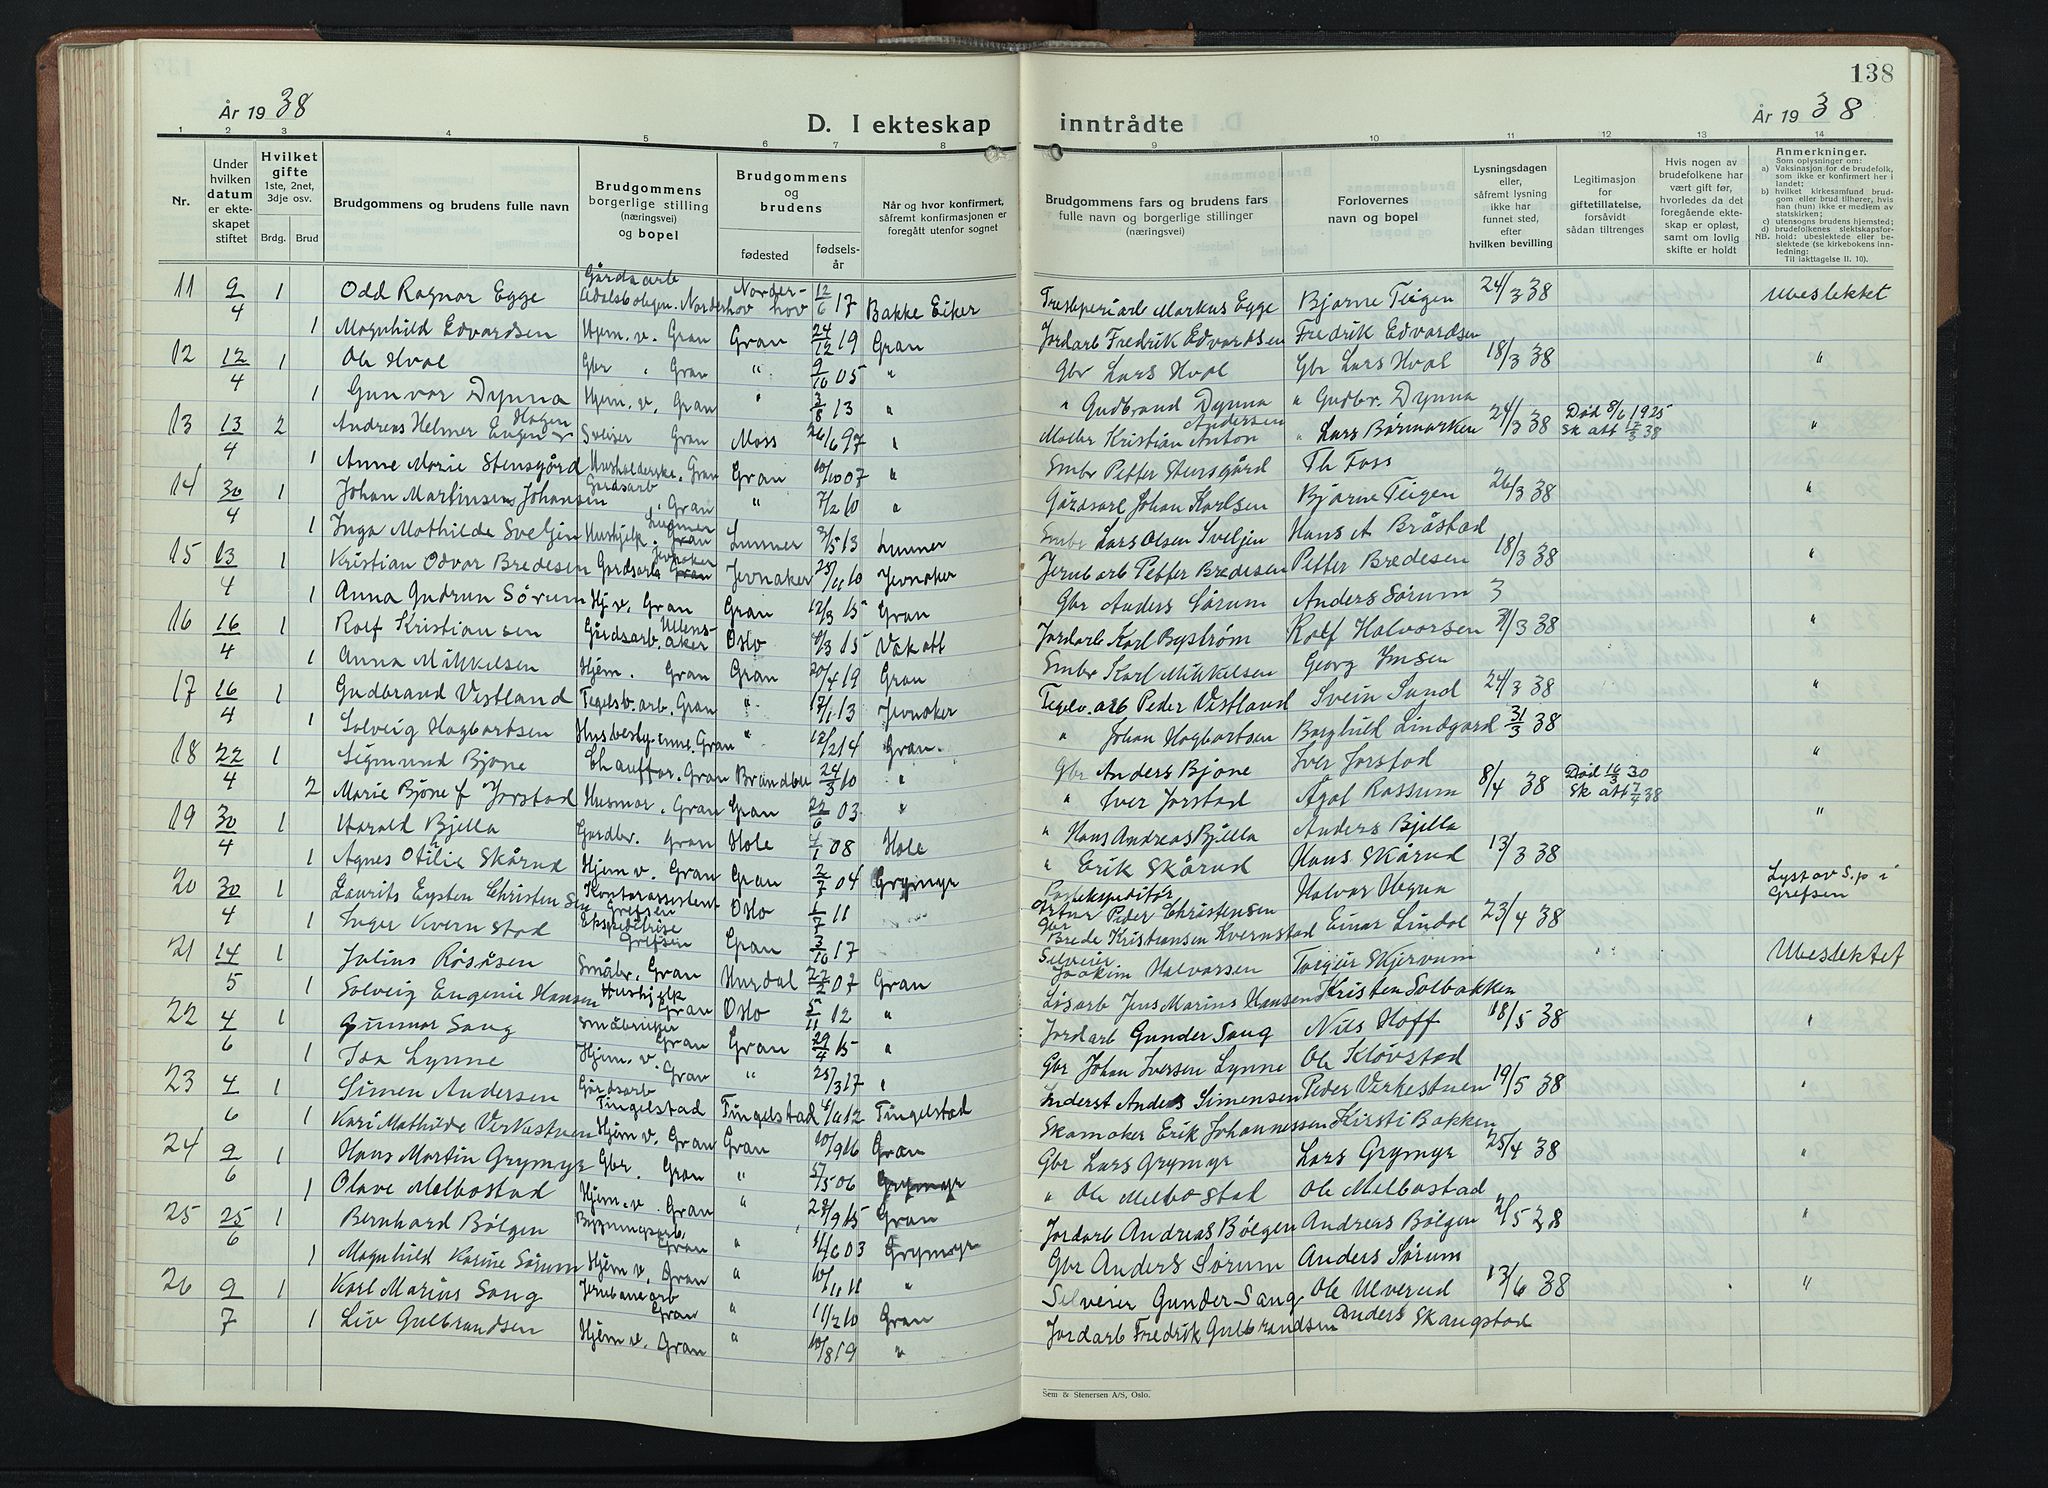 138
År 1938
D. I ekteskap inntrådte
År 1938
1 2 3 4 5 6 7 8 9 10 11 12 13 14
Nr.
Under hvilken datum er ekteskapet stiftet
Hvilket gifte 1ste, 2net, 3dje osv.
Brdg. Brud
Brudgommens og brudens fulle navn
Brudgommens borgerlige stilling (næringsvei) og bopel
Brudgommens og brudens
fødested
fødselsår
Når og hvor konfirmert, såfremt konfirmasjonen er foregått utenfor sognet
Brudgommens fars og brudens fars fulle navn og borgerlige stillinger (næringsvei)
Forlovernes navn og bopel
Lysningsdagen eller, såfremt lysning ikke har funnet sted, efter hvilken bevilling
Legitimasjon for giftetillatelse, forsåvidt sådan tiltrenges
Hvis nogen av brudefolkene har vært gift før, hvorledes da det foregående ekteskap er opløst, samt om lovlig skifte er holdt
Anmerkninger.
Som oplysninger om:
a) Vaksinasjon for de brudefolk, som ikke er konfirmert her i landet;
b) hvilket kirkesamfund brudgom eller brud tilhører, hvis han (hun) ikke er medlem av statskirken;
c) utensogns brudens hjemsted;
d) brudefolkenes slektskapsforhold: ubeslektede eller beslektede (se kirkebokens innledning:
NB. Til iakttagelse II. 10).
11 9/4 1 Odd Ragnar Egge Gårdsarb Norderhov Norderhov 12/6 17 Bakke Eiker Markus Egge Bjarne Teigen 24/3 38 Ubeslektet
1 Magnhild Edvardsen Hjem. v. Gran Gran 24/12 19 Gran Jordarb Fredrik Edvardsen Fredrik Edvardsen
12 12/4 1 Ole Hval Gbr " Gran " 9/10 05 " Gbr Lars Hval Gbr Lars Hval 18/3 38 "
1 Gunvor Dynna Hjem. v. Gran " 3/8 13 " " Gudbrand Dynna " Gudbr. Dynna
13 13/4 2 Andreas Helmer Eugen Hagen Sveiser Gran Moss 26/6 97 " Møller Kristian Anton Andersen " Lars Børmarken 24/3 38 Død 8/6 1925 Sk att 12/3 38 "
1 Anne Marie Stensgård Husholderske. Gran Gran 10/10 07 " Smbr Petter Stensgård Th Foss
14 30/4 1 Johan Martinsen Johansen Gårdsarb " Gran " 7/2 10 " Gårdsarb Johan Karlsen Bjarne Teigen 26/3 38 "
1 Inga Mathilde Sveljen Hushjelp. Gran Lunner Lunner 2/5 13 Lunner Smbr Lars Olsen Sveljen Hans A Bråstad
15 13/4 1 Kristian Odvar Bredesen Gårdsarb Gran Jevnaker Jevnaker 25/11 10 Jevnaker Jernb arb Petter Bredesen Petter Bredesen 18/3 38 "
1 Anna Gudrun Sørum Hj. v. Gran Gran 12/3 15 Gran Gbr Anders Sørum Anders Sørum 3
16 16/4 1 Rolf Kristiansen Gårdsarb. Ullensaker Oslo 8/3 15 Våk att Jordarb Karl Byström Rolf Halvorsen 31/3 38 "
1 Anna Mikkelsen Hjem. Gran Gran 20/4 19 Gran Smbr Karl Mikkelsen Georg Jmsen
17 16/4 1 Gudbrand Vestland Teglv. arb. Gran " 17/1 13 Jevnaker Teglv. arb Peder Vestland Svein Sand 24/3 38 "
1 Solveig Hagbartsen Husbestyrinne. Gran " 12/2 14 Gran. " Johan Hagbartsen Borghild Lindgard 31/3 38
18 22/4 1 Sigmund Bjone Chauffør. Gran Brandbu 24/3 10 " Gbr Anders Bjone Iver Jorstad "
2 Marie Bjone f Jorstad Husmor. Gran Gran 22/6 03 " " Iver Jorstad Agot Rossum 8/4 38 Død 16/3 30 Sk att 7/4 38
19 30/4 1 Harald Bjella Gardbr. Gran Hole 7/1 08 Hole " Hans Andreas Bjella Anders Bjella "
1 Agnes Othilie Skårud Hjem v. Gran Gran 2/7 04 Grymyr " Erik Skårud Hans Skårud 13/3 38
20 30/4 1 Laurits Eysten Christensen Kontorassistent Grefsen Oslo 1/7 11 Postekspeditør Artur Peder Christensen Halvar Hegna Lyst av S.p i Grefsen
1 Inger Kvernstad Ekspeditrise Grefsen Gran 3/10 17 Gbr Brede Kristiansen Kvernstad Einar Lindal 23/4 38
21 14/5 1 Julius Røsåsen Småbr. Gran Hurdal 22/2 07 Gran Selveier Joakim Halvorsen Torgeir Skjervum Ubeslektet
1 Solveig Eugenie Hansen Hushjelp Gran Oslo 5/11 12 " Løsarb Jens Marius Hansen Kristen Solbakken
22 4/6 1 Gunnar Sang Småbruker Gran Gran 29/4 15 " Jordarb Gunder Sang Nils Hoff 18/5 38 "
1 Ida Lynne Hjem. v. Gran " 25/3 17 " Gbr Johan Iversen Lynne Ole Kløvstad
23 4/6 1 Simen Andersen Gårdsarb Tingelstad Tingelstad 4/10 12 Tingelstad Inderst Anders Simensen Peder Virkestuen 19/5 38 "
1 Kari Mathilde Virkestuen Hjem v. Gran Gran 10/9 16 Gran Skomaker Erik Johannessen Kirsti Bakken
24 9/6 1 Hans Martin Grymyr Gbr. Gran " 5/5 06 Grymyr Gbr Lars Grymyr Lars Grymyr 25/4 38 "
1 Olave Melbostad Hjem. v. Gran " 28/9 15 Gran " Ole Melbostad Ole Melbostad
25 25/6 1 Bernhard Bølgen Bygningsarb. Gran " 11/6 03 Grymyr Jordarb Andreas Bølgen Andreas Bølgen 21/5 38 "
1 Magnhild Karine Sørum Hjem v. Gran " 10/11 11 " Gbr Anders Sørum Anders Sørum
26 9/7 1 Karl Marius Sang Jernbanearb Gran " 11/2 10 Gran Selveier Gunder Sang Ole Ulverud 13/6 38 "
1 Liv Gulbrandsen Hjem v. Gran " 10/8 19 " Jordarb Fredrik Gulbrandsen Anders Skangstad
Sem & Stenersen A/S, Oslo.